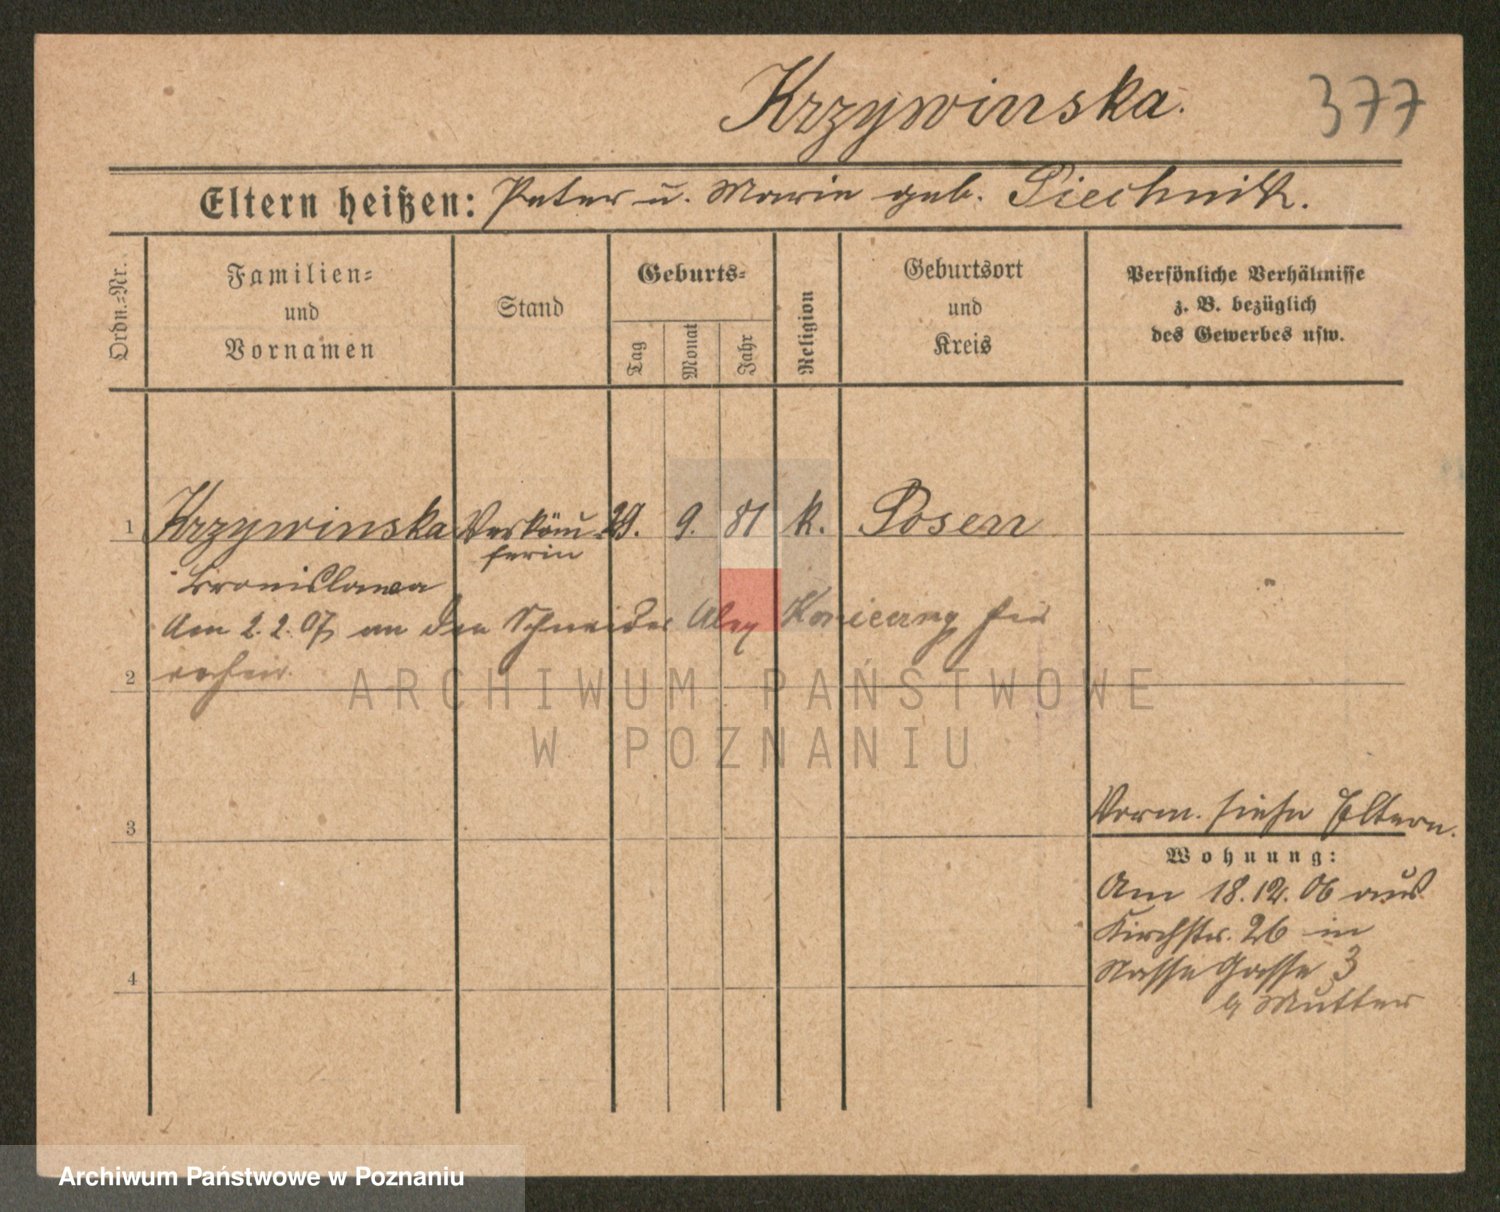 Krzywinska.
377
Eltern heißen: Peter u. Marie geb. Piechnik.
Ordn.=Nr.
Familien=
und
Vornamen
Stand
Geburts=
Tag
Monat
Jahr
Religion
Geburtsort
und
Kreis
Persönliche Verhältnisse
z. B. bezüglich
des Gewerbes usw.
1 Krzywinska Verkäu 29. 9. 81 k. Posen
ferin
Bronislawa
Am 2. 2. 07 an den Schneider Alex
2
ARCHIWUM PAŃSTWOWE
W POZNANIU
Vorm. siehe Eltern.
3
Wohnung:
Am 18.12.06 aus
Kirchstr. 26 in
Nasse Gasse 3
4
b Mutter
Archiwum Państwowe w Poznaniu